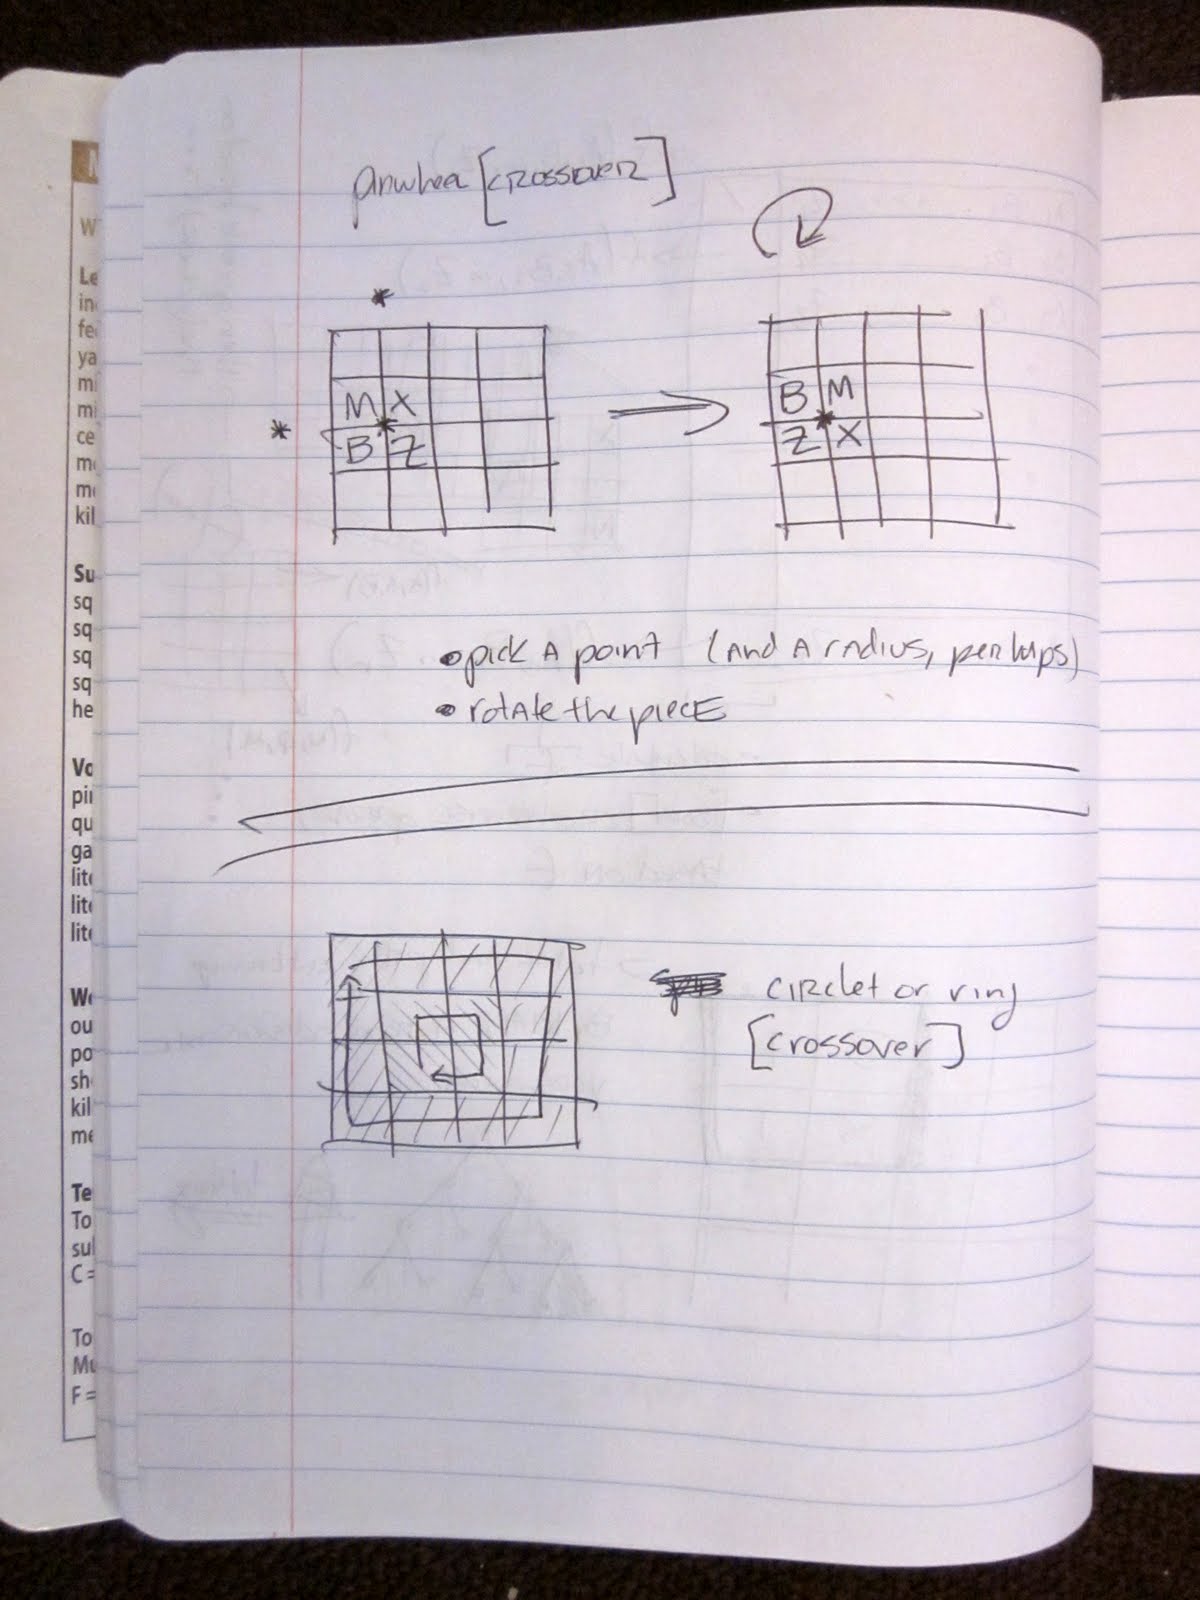 pinwheel [crossover]
*
M X
* B * Z
B M
* Z X
• pick A point (and A radius, perhaps)
• rotate the piece
circlet or ring
[crossover]
W
Le
in
fe
ya
m
mi
ce
m
m
kil
Su
sq
sq
sq
sq
he
Vo
pi
qu
ga
lit
lit
lit
We
ou
po
sh
kil
me
Te
To
su
C =
To
Mu
F =